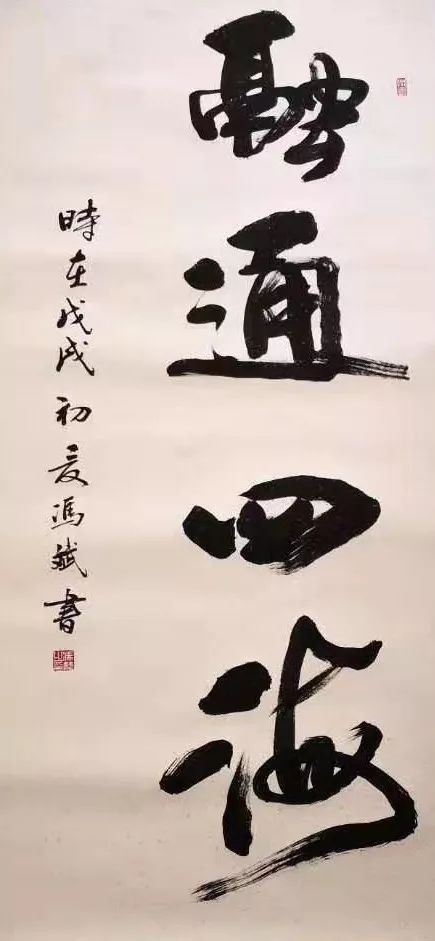 融通四海
時在戊戌初夏馮斌書